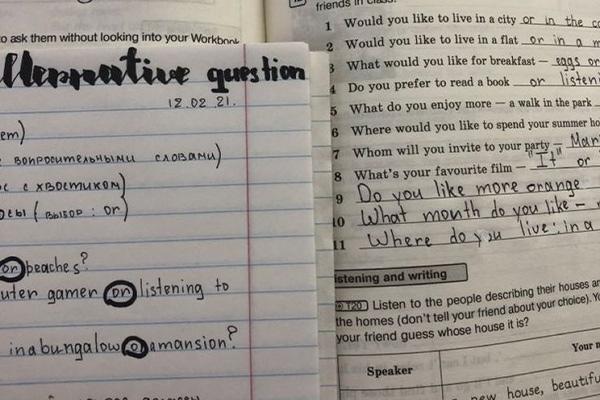 to ask them without looking into your Workbook
Alternative question
12.02.21.
вопросительными словами)
с хвостиком)
(выбор: or)
or beaches?
gamer or listening to
in a bungalow or a mansion?
friends in class.
1 Would you like to live in a city or in the
2 Would you like to live in a flat or in a
3 What would you like for breakfast – eggs or
4 Do you prefer to read a book or
5 What do you enjoy more – a walk in the park
6 Where would you like to spend your summer
7 Whom will you invite to your party –
8 What's your favourite film – "It" or
9 Do you like more orange
10 What month do you like –
11 Where do you live: in a
istening and writing
T20 Listen to the people describing their houses
the homes (don't tell your friend about your choice).
your friend guess whose house it is?
Speaker
new house,